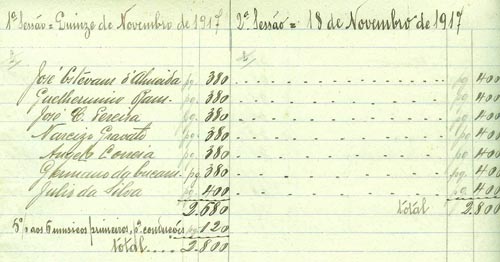 1ª Sessão = Quinze de Novembro de 1917 2ª Sessão = 18 de Novembro de 1917
José Estevans d'Almeida pg. 380 pg. 400
Guilhermino pg. 380 pg. 400
José C. Pereira pg. 380 pg. 400
Narcizo Gravato pg. 380 pg. 400
Angelo Correia pg. 380 pg. 400
Germano da pg. 380 pg. 400
Julio da Silva pg. 400 pg. 400
2.680 total 2.800
aos 6 musicos primeiros, pg. 120
total.... 2.800